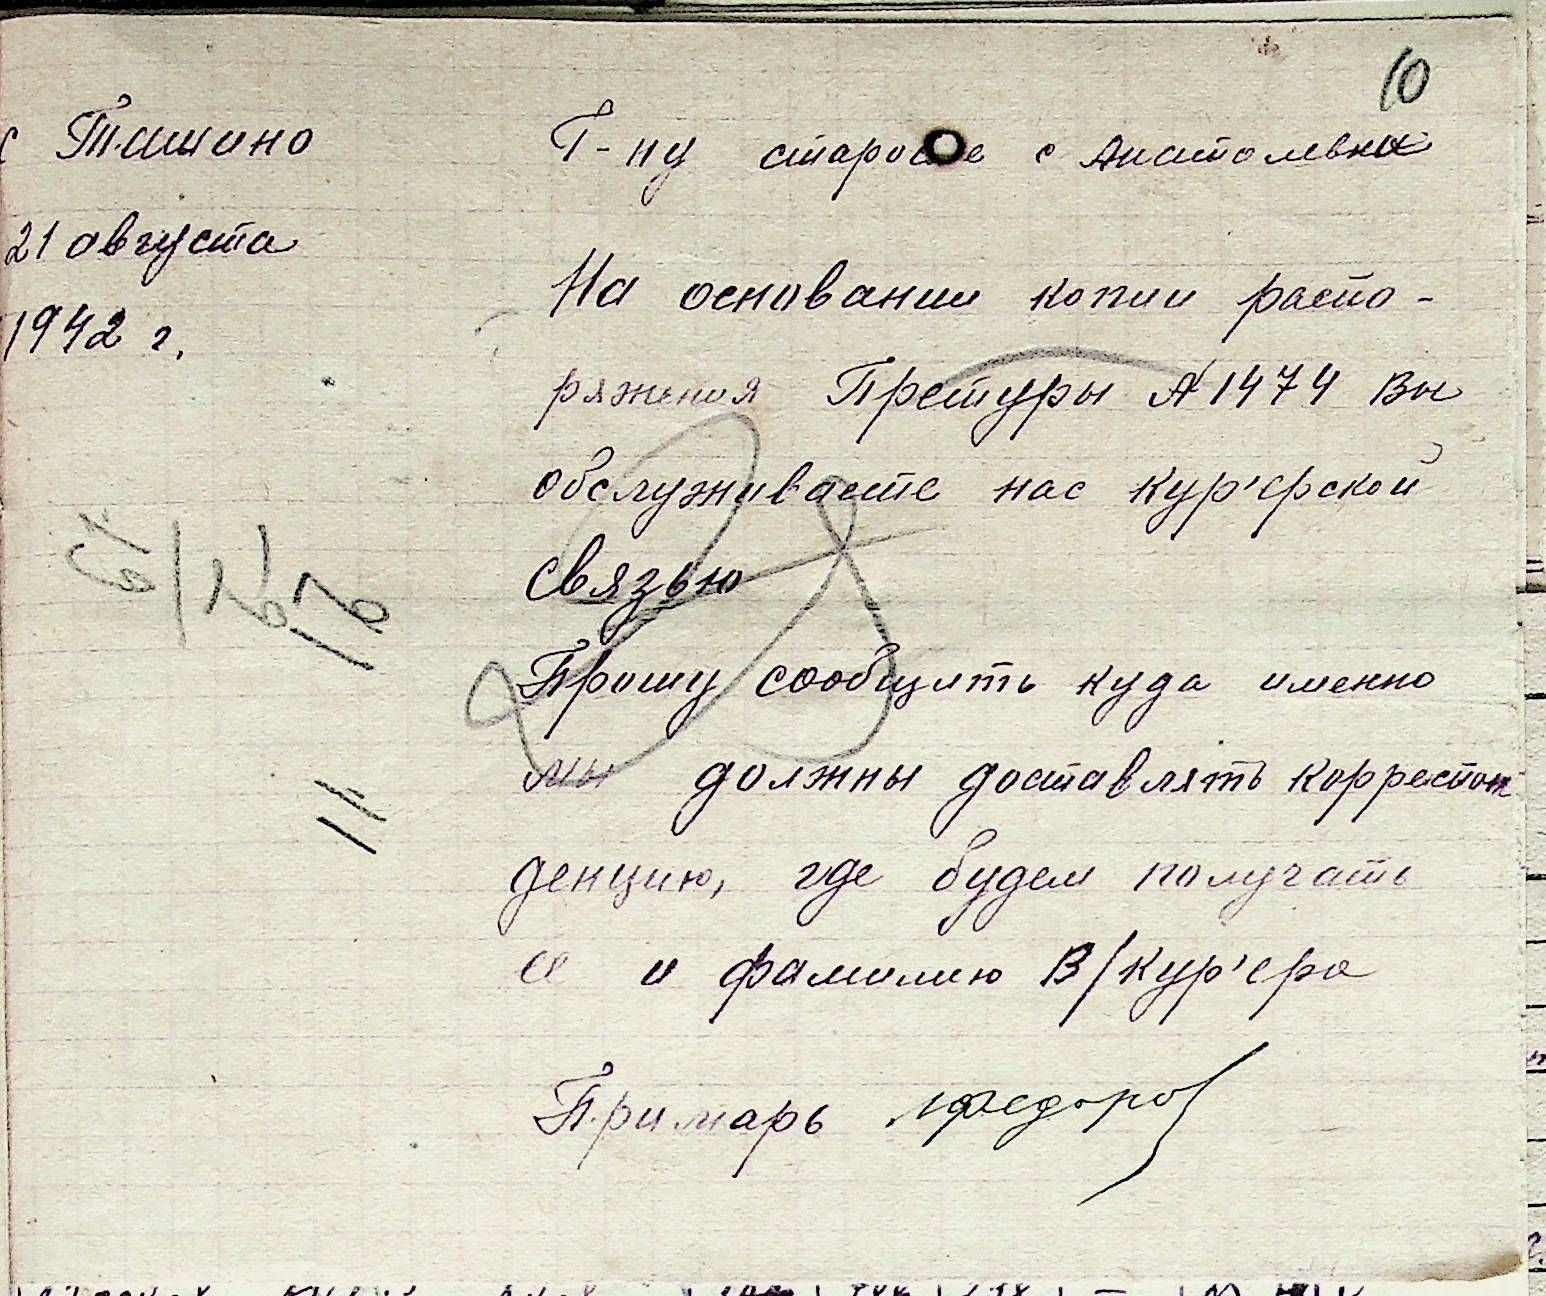 10
с Тишино
21 августа
1942 г.
Г-ну старосте с Анатолевка
На основании копии распо-
ряжения Претуры № 1474 Вы
обслуживаете нас кур'ерской
связью
Прошу сообщить куда именно
мы должны доставлять корреспон
денцию, где будем получать
и фамилию В/кур'ера
Примарь Федоров